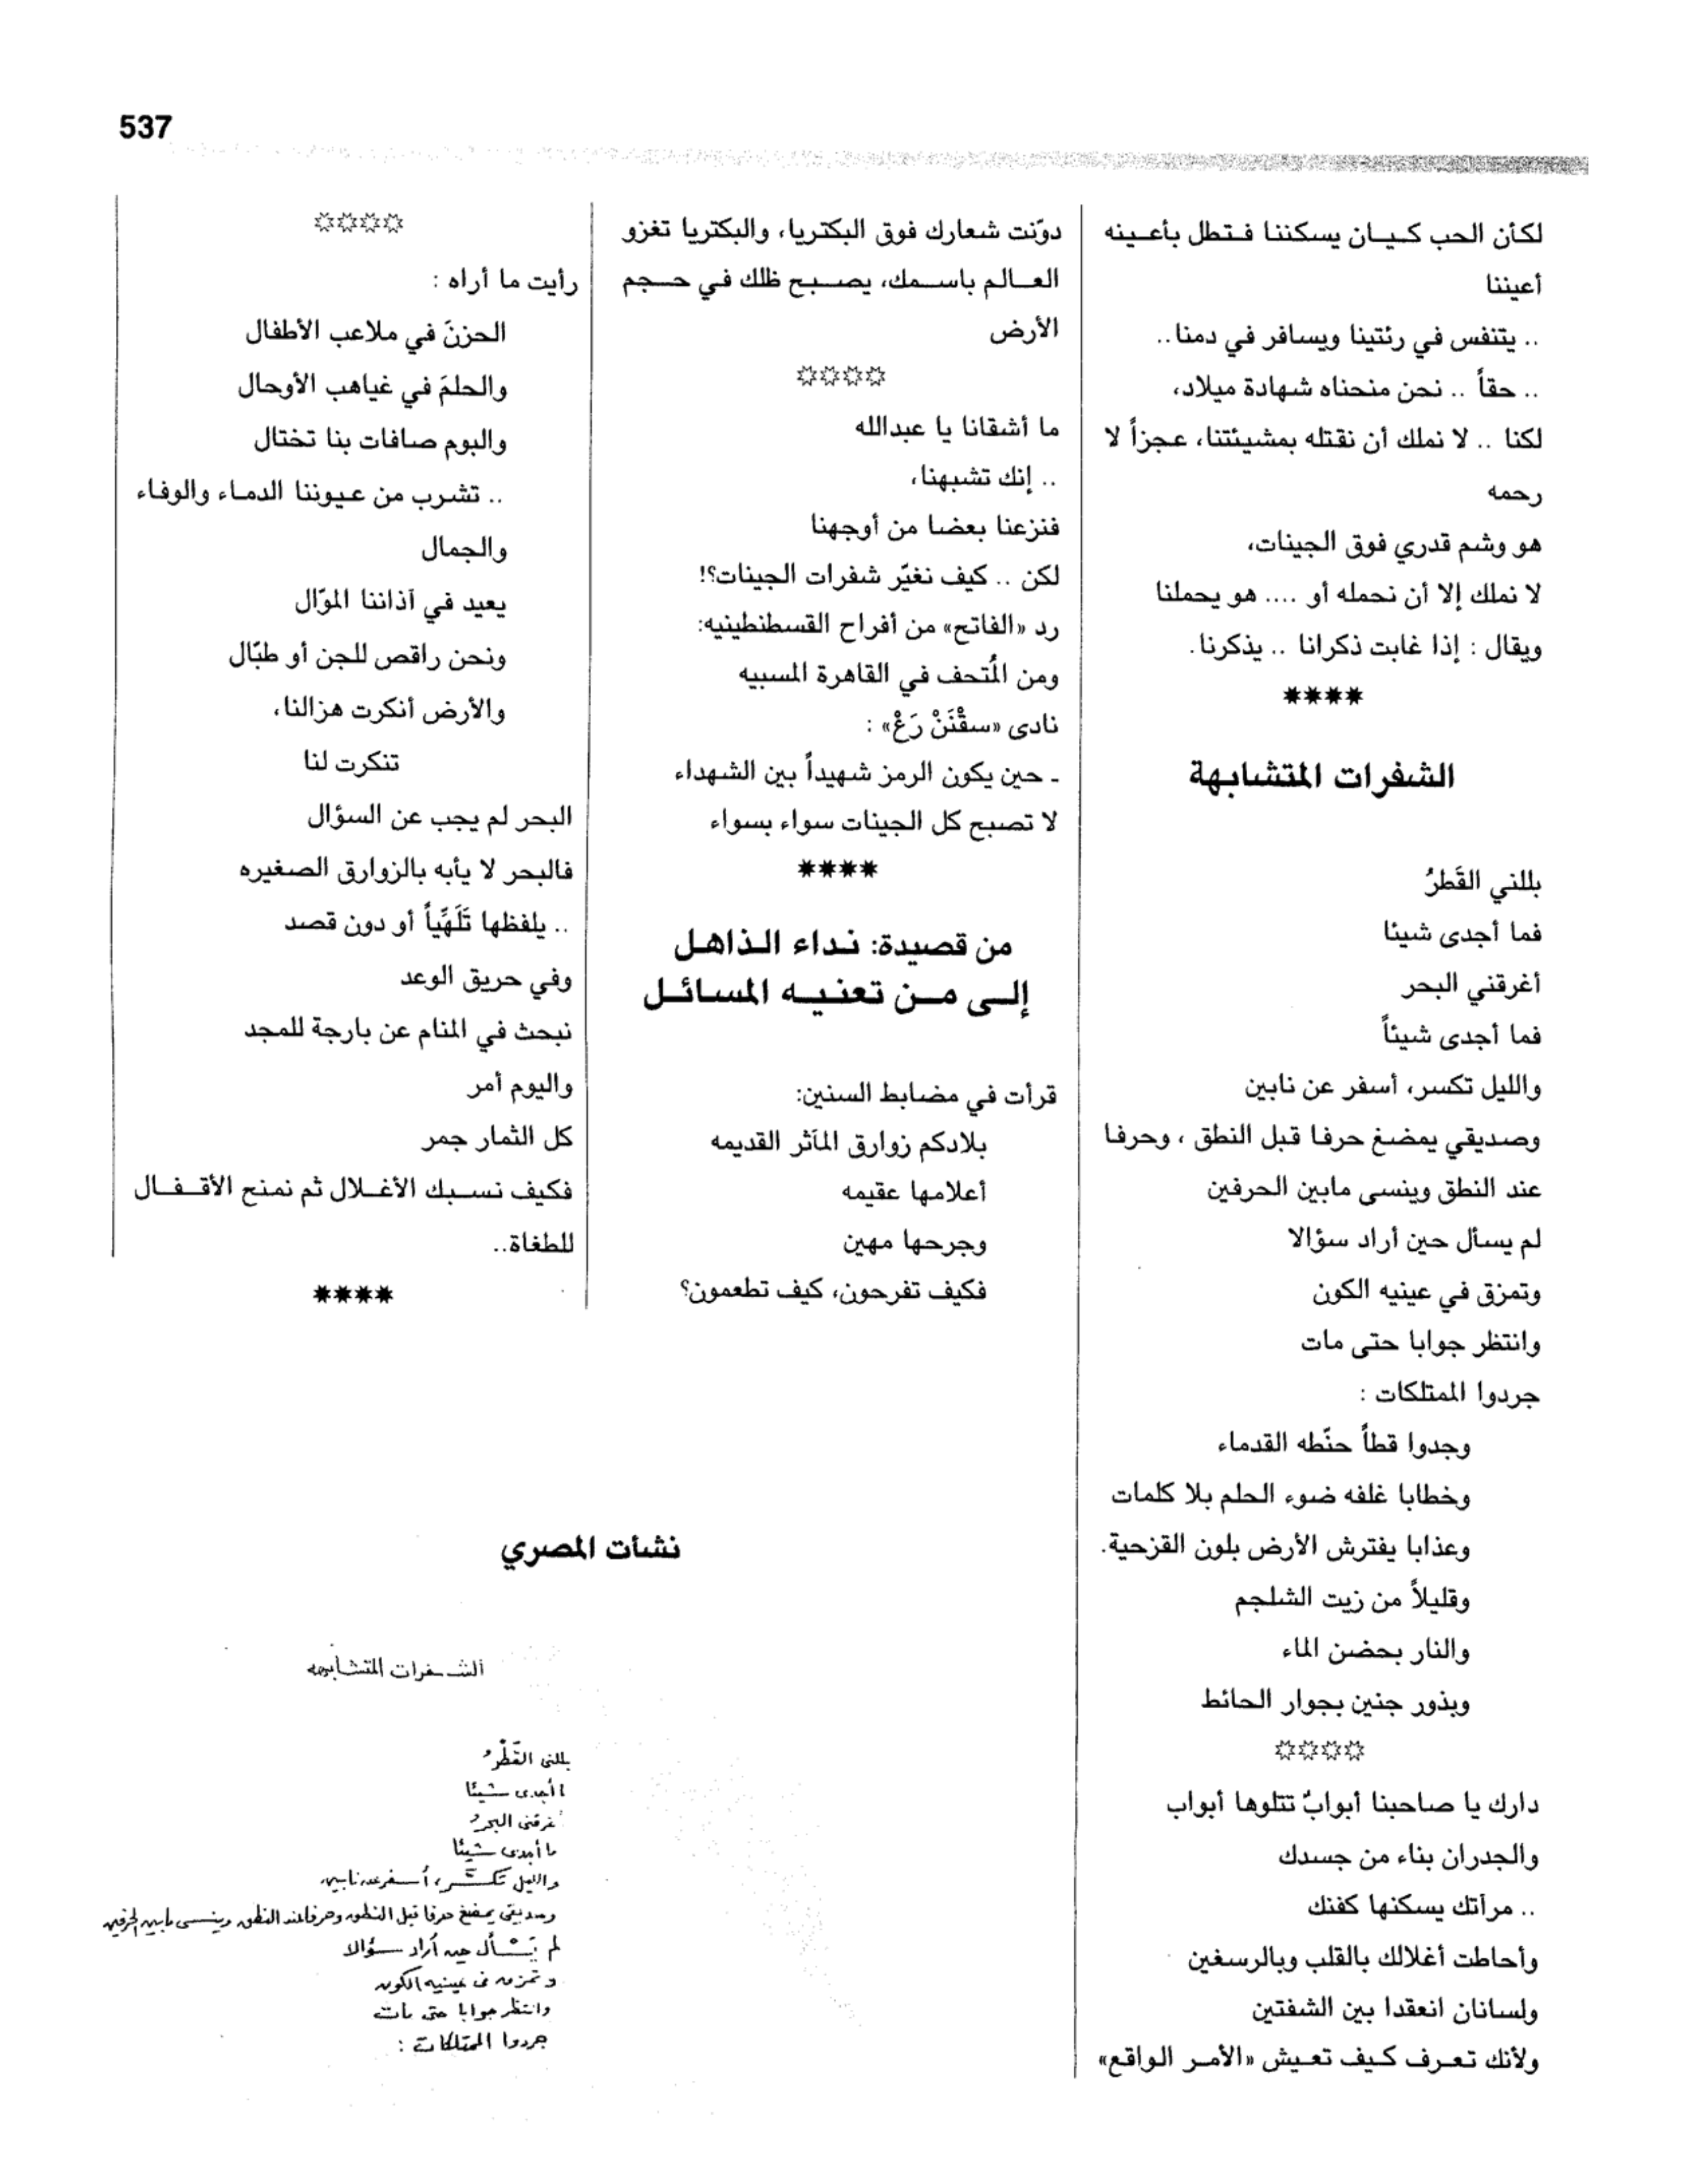 537
لكأن الحب كيان يسكننا فتطل بأعينه
أعيننا
.. يتنفس في رئتينا ويسافر في دمنا..
.. حقاً .. نحن منحناه شهادة ميلاد،
لكنا .. لا نملك أن نقتله بمشيئتنا، عجزاً لا
رحمه
هو وشم قدري فوق الجينات،
لا نملك إلا أن نحمله أو .... هو يحملنا
ويقال : إذا غابت ذكرانا .. يذكرنا.
****
الشفرات المتشابهة
بللني القَطرُ
فما أجدى شيئا
أغرقني البحر
فما أجدى شيئاً
والليل تكسر، أسفر عن نابين
وصديقي يمضغ حرفا قبل النطق ، وحرفا
عند النطق وينسى مابين الحرفين
لم يسأل حين أراد سؤالا
وتمزق في عينيه الكون
وانتظر جوابا حتى مات
جردوا الممتلكات :
وجدوا قطاً حنّطه القدماء
وخطابا غلفه ضوء الحلم بلا كلمات
وعذابا يفترش الأرض بلون القزحية.
وقليلاً من زيت الشلجم
والنار بحضن الماء
وبذور جنين بجوار الحائط
☼☼☼☼
دارك يا صاحبنا أبوابٌ تتلوها أبواب
والجدران بناء من جسدك
.. مرآتك يسكنها كفنك
وأحاطت أغلالك بالقلب وبالرسغين
ولسانان انعقدا بين الشفتين
ولأنك تعرف كيف تعيش «الأمر الواقع»
دوّنت شعارك فوق البكتريا، والبكتريا تغزو
العالم باسمك، يصبح ظلك في حجم
الأرض
☼☼☼☼
ما أشقانا يا عبدالله
.. إنك تشبهنا،
فنزعنا بعضا من أوجهنا
لكن .. كيف نغيّر شفرات الجينات؟!
رد «الفاتح» من أفراح القسطنطينيه:
ومن المُتحف في القاهرة المسبيه
نادى «سقْنَنْ رَعْ» :
ـ حين يكون الرمز شهيداً بين الشهداء
لا تصبح كل الجينات سواء بسواء
****
من قصيدة: نداء الذاهل
إلى من تعنيه المسائل
قرأت في مضابط السنين:
بلادكم زوارق المآثر القديمه
أعلامها عقيمه
وجرحها مهين
فكيف تفرحون، كيف تطعمون؟
☼☼☼☼
رأيت ما أراه :
الحزنَ في ملاعب الأطفال
والحلمَ في غياهب الأوحال
والبوم صافات بنا تختال
.. تشرب من عيوننا الدماء والوفاء
والجمال
يعيد في آذاننا الموّال
ونحن راقص للجن أو طبّال
والأرض أنكرت هزالنا،
تنكرت لنا
البحر لم يجب عن السؤال
فالبحر لا يأبه بالزوارق الصغيره
.. يلفظها تَلَهِّياً أو دون قصد
وفي حريق الوعد
نبحث في المنام عن بارجة للمجد
واليوم أمر
كل الثمار جمر
فكيف نسبك الأغلال ثم نمنح الأقفال
للطغاة..
****
نشأت المصري
الشفرات المتشابهه
بللني القَطْرُ
ما أجدى شيئا
غرقني البحرُ
ما أجدى شيئا
والليل تكسَّر، أسفر عن نابين
وصديقي يمضغ حرفا قبل النطق وحرفا عند النطق وينسى مابين الحرفين
لم يَسْأل حين أراد سؤالا
وتمزق في عينيه الكون
وانتظر جوابا حتى مات
جردوا الممتلكات :